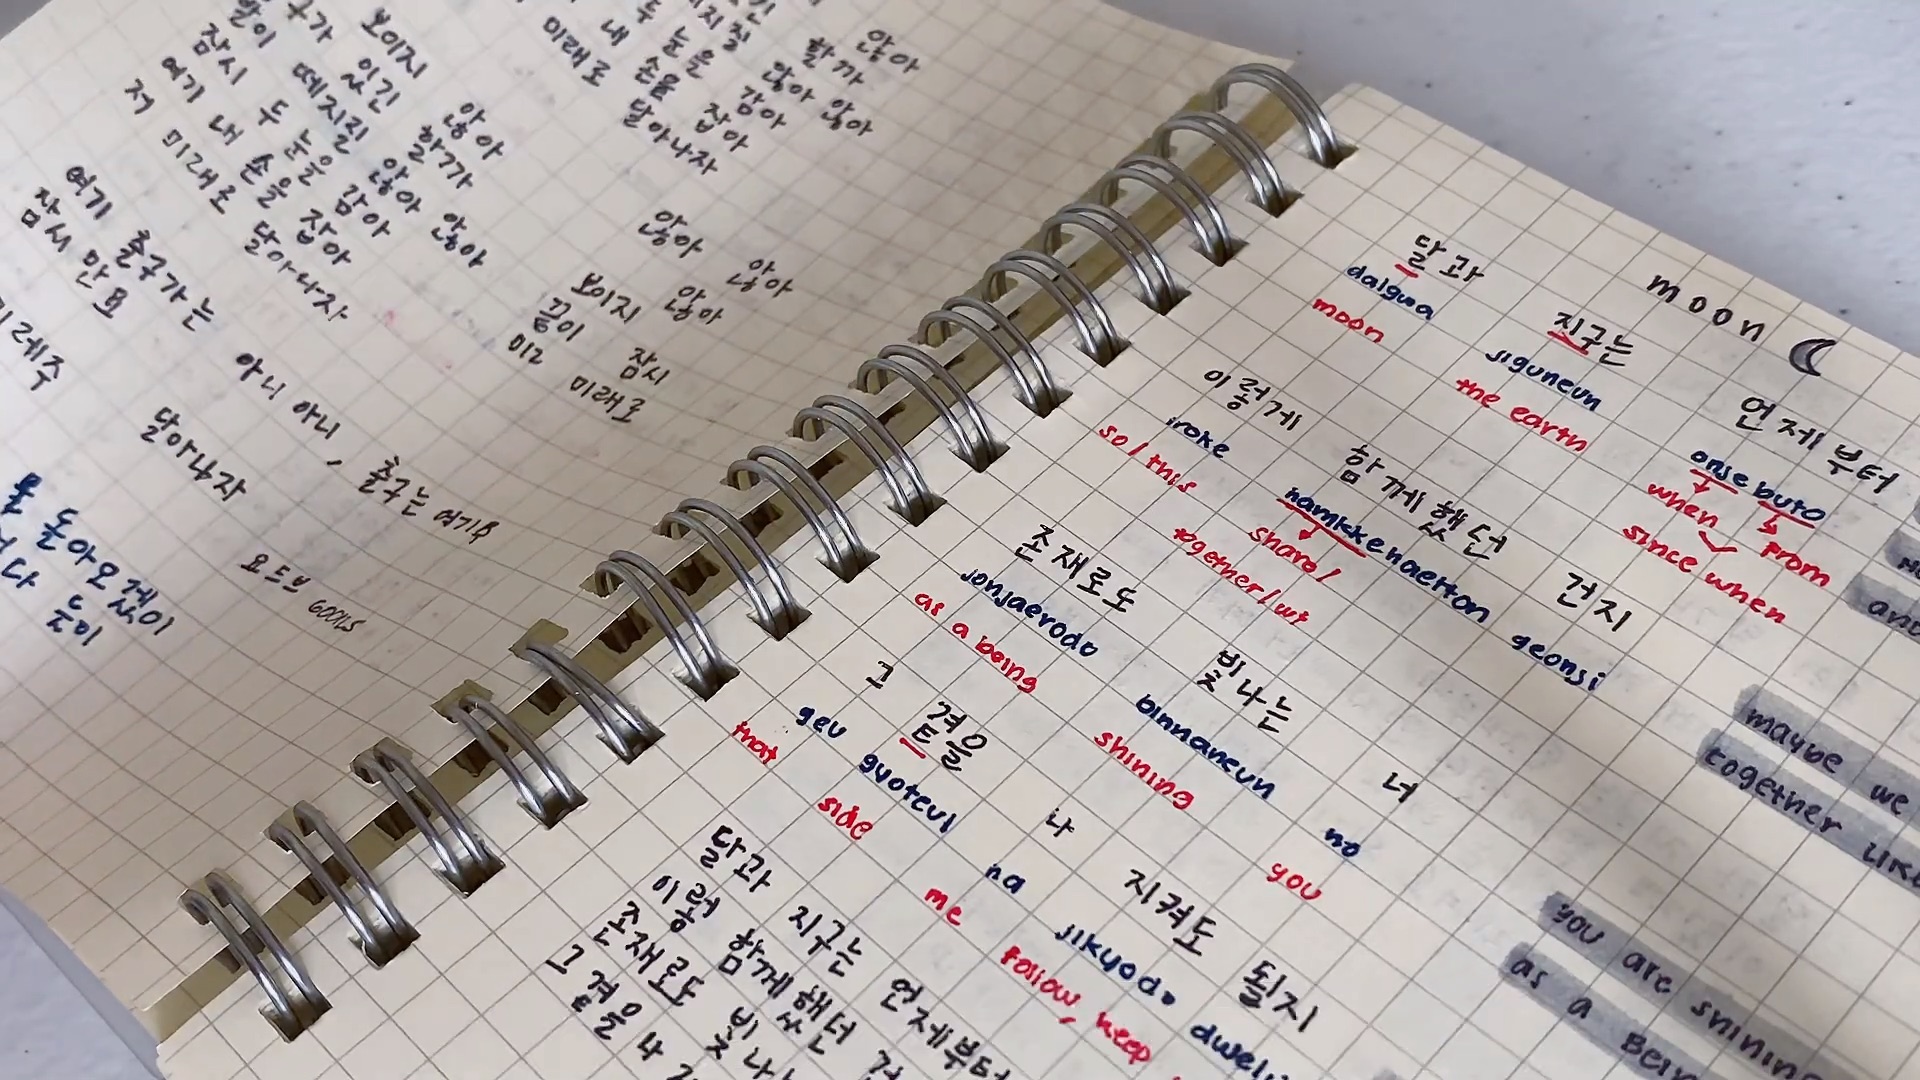 보이지 않아
않아
할까
않아 않아
두 눈을 감아
내 손을 잡아
미래로 달아나자
구가 있긴 할까
발이 떼지질 않아 않아
잠시 두 눈을 감아
여기 내 손을 잡아
저 미래로 달아나자
않아 않아
보이지 않아
끝이 잠시
미래로
여기 출구가는 아니 아니, 출구는 여기야
잠시만요
달아나자
요드브 GOALS
moon
달과 지구는 언제부터
dalgwa jiguneun onsebuto
moon the earth when from
since when
이렇게 함께했던 건지
iroke hamkkehaetton geonsi
so/this share/
together/wt
존재로도 빛나는 너
jonjaerodo binnaneun no
as a being shining you
그 곁을 나 지켜도 될지
geu gyoteul na jikyodo
that side me follow, keep
달과 지구는 언제부터
이렇 함께했던
존재로도 빛나
그 곁을 나
and
maybe we
together like
you are shining
as a being